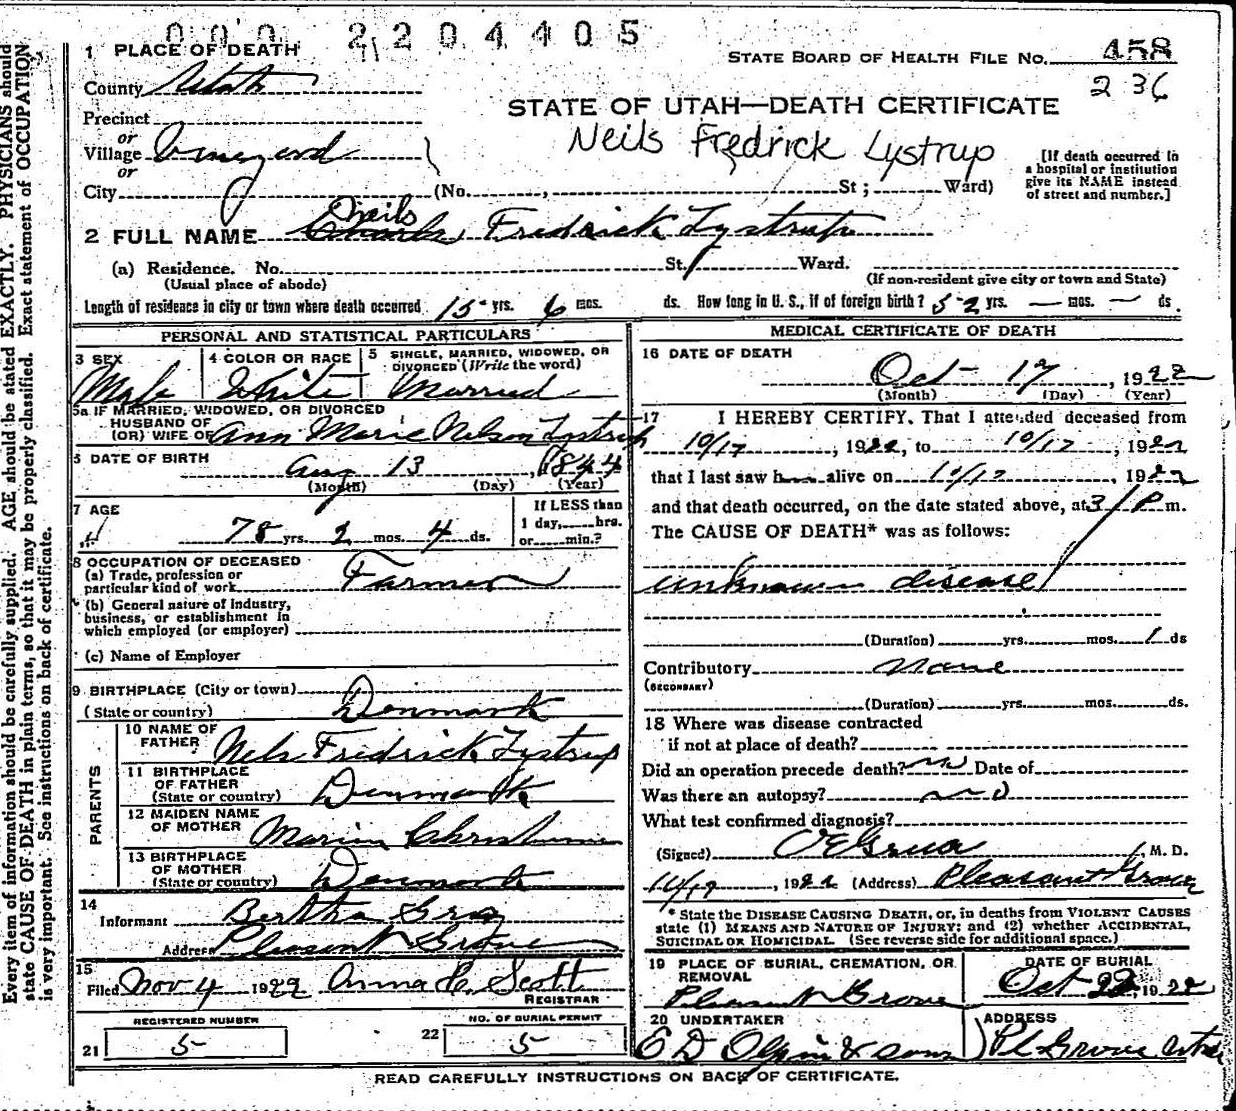 000 2204405
STATE BOARD OF HEALTH FILE No. 458
236
1 PLACE OF DEATH
County Utah
STATE OF UTAH—DEATH CERTIFICATE
Precinct
or
Village Vineyard
Neils Fredrick Lystrup
or
City (No. , St ; Ward)
[If death occurred in
a hospital or institution
give its NAME instead
of street and number.]
Neils
2 FULL NAME Fredrick Lystrup
(a) Residence. No. St. Ward.
(Usual place of abode) (If non-resident give city or town and State)
Length of residence in city or town where death occurred 15 yrs. 6 mos. ds. How long in U. S., if of foreign birth? 52 yrs. — mos. — ds.
PERSONAL AND STATISTICAL PARTICULARS
3 SEX 4 COLOR OR RACE 5 SINGLE, MARRIED, WIDOWED, OR
DIVORCED (Write the word)
Male White Married
5a IF MARRIED, WIDOWED, OR DIVORCED
HUSBAND OF
(OR) WIFE OF Ann Marie Nelson Lystrup
6 DATE OF BIRTH Aug 13, 1844
(Month) (Day) (Year)
7 AGE
78 yrs. 2 mos. 4 ds.
If LESS than
1 day, hrs.
or min.?
8 OCCUPATION OF DECEASED
(a) Trade, profession or
particular kind of work Farmer
(b) General nature of industry,
business, or establishment in
which employed (or employer)
(c) Name of Employer
9 BIRTHPLACE (City or town)
(State or country) Denmark
PARENTS
10 NAME OF
FATHER Nels Fredrick Lystrup
11 BIRTHPLACE
OF FATHER
(State or country) Denmark
12 MAIDEN NAME
OF MOTHER
13 BIRTHPLACE
OF MOTHER
(State or country) Denmark
14
Informant Bertha Gray
Address Pleasant Grove
15
Filed Nov 4 1922 Anna C. Scott
REGISTRAR
REGISTERED NUMBER
21 5
NO. OF BURIAL PERMIT
22 5
MEDICAL CERTIFICATE OF DEATH
16 DATE OF DEATH
Oct 17, 1922
(Month) (Day) (Year)
17 I HEREBY CERTIFY, That I attended deceased from
10/17, 1922, to 10/17, 1922
that I last saw h alive on 10/17, 1922
and that death occurred, on the date stated above, at 3 P m.
The CAUSE OF DEATH* was as follows:
unknown disease
(Duration) yrs. mos. 1 ds
Contributory None
(SECONDARY)
(Duration) yrs. mos. ds.
18 Where was disease contracted
if not at place of death?
Did an operation precede death? no Date of
Was there an autopsy? no
What test confirmed diagnosis?
(Signed) O E Grua, M. D.
1922 (Address) Pleasant Grove
* State the DISEASE CAUSING DEATH, or, in deaths from VIOLENT CAUSES
state (1) MEANS AND NATURE OF INJURY; and (2) whether ACCIDENTAL,
SUICIDAL OR HOMICIDAL. (See reverse side for additional space.)
19 PLACE OF BURIAL, CREMATION, OR
REMOVAL
Pleasant Grove
DATE OF BURIAL
Oct 22, 1922
20 UNDERTAKER
E D Olpin & sons
ADDRESS
Pl Grove Utah
READ CAREFULLY INSTRUCTIONS ON BACK OF CERTIFICATE.
Every item of information should be carefully supplied. AGE should be stated EXACTLY. PHYSICIANS should
state CAUSE OF DEATH in plain terms, so that it may be properly classified. Exact statement of OCCUPATION
is very important. See instructions on back of certificate.